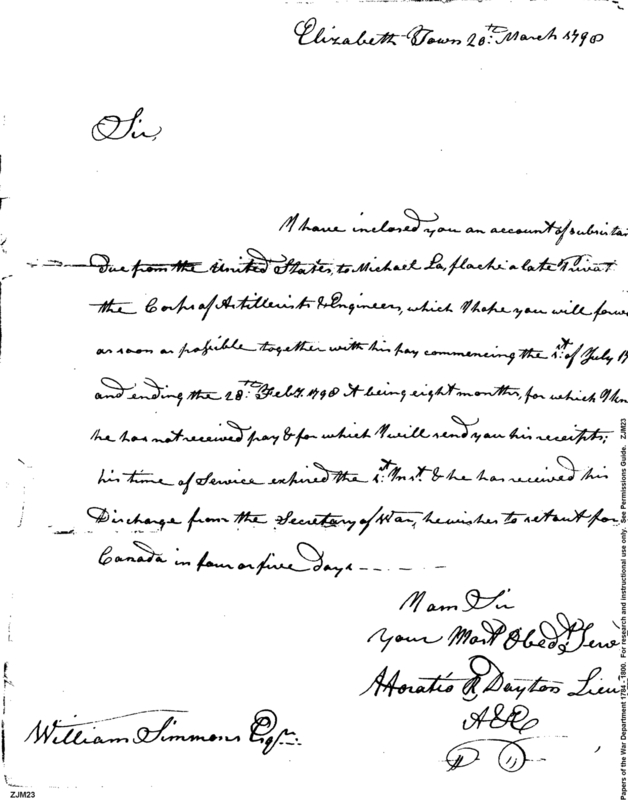 Elizabeth Town 20th March 1798
Sir,
I have inclosed you an account of subsistan
due from the United States, to Michael La, flache a late Privat
the Corps of Artillerists & Engineers, which I hope you will forwa
as soon as possible together with his pay commencing the 1st of July 17
and ending the 28th Feby. 1798 It being eight months, for which I kn
he has not received pay & for which I will send you his receipts;
his time of Service expired the 1st Inst. & he has received his
Discharge from the Secretary of War, he wishes to set out for
Canada in four or five Days
I am Sir
Your Most Obedt. Serv
Horatio R Dayton Lieu
A&E
William Simmons Esqr.
ZJM23
Papers of the War Department 1784 - 1800. For research and instructional use only. See Permissions Guide. ZJM23